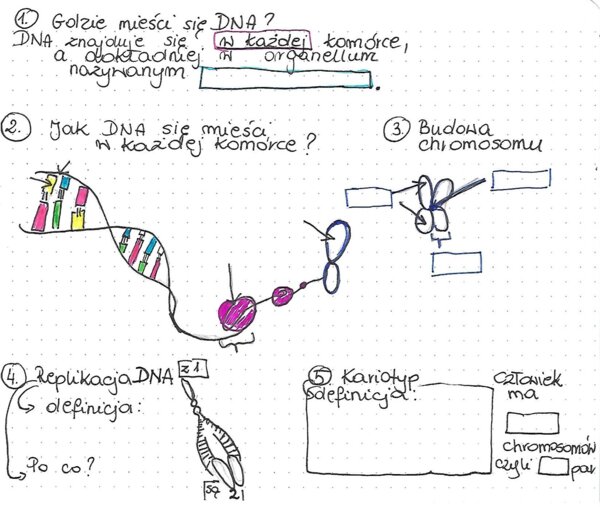 1. Gdzie mieści się DNA?
DNA znajduje się w każdej komórce,
a dokładniej w organellum
nazywanym .
2. Jak DNA się mieści
w każdej komórce?
3. Budowa
chromosomu
4. Replikacja DNA
definicja:
Po co?
z 1
są 2
5. Kariotyp
definicja:
człowiek
ma
chromosomów
czyli par